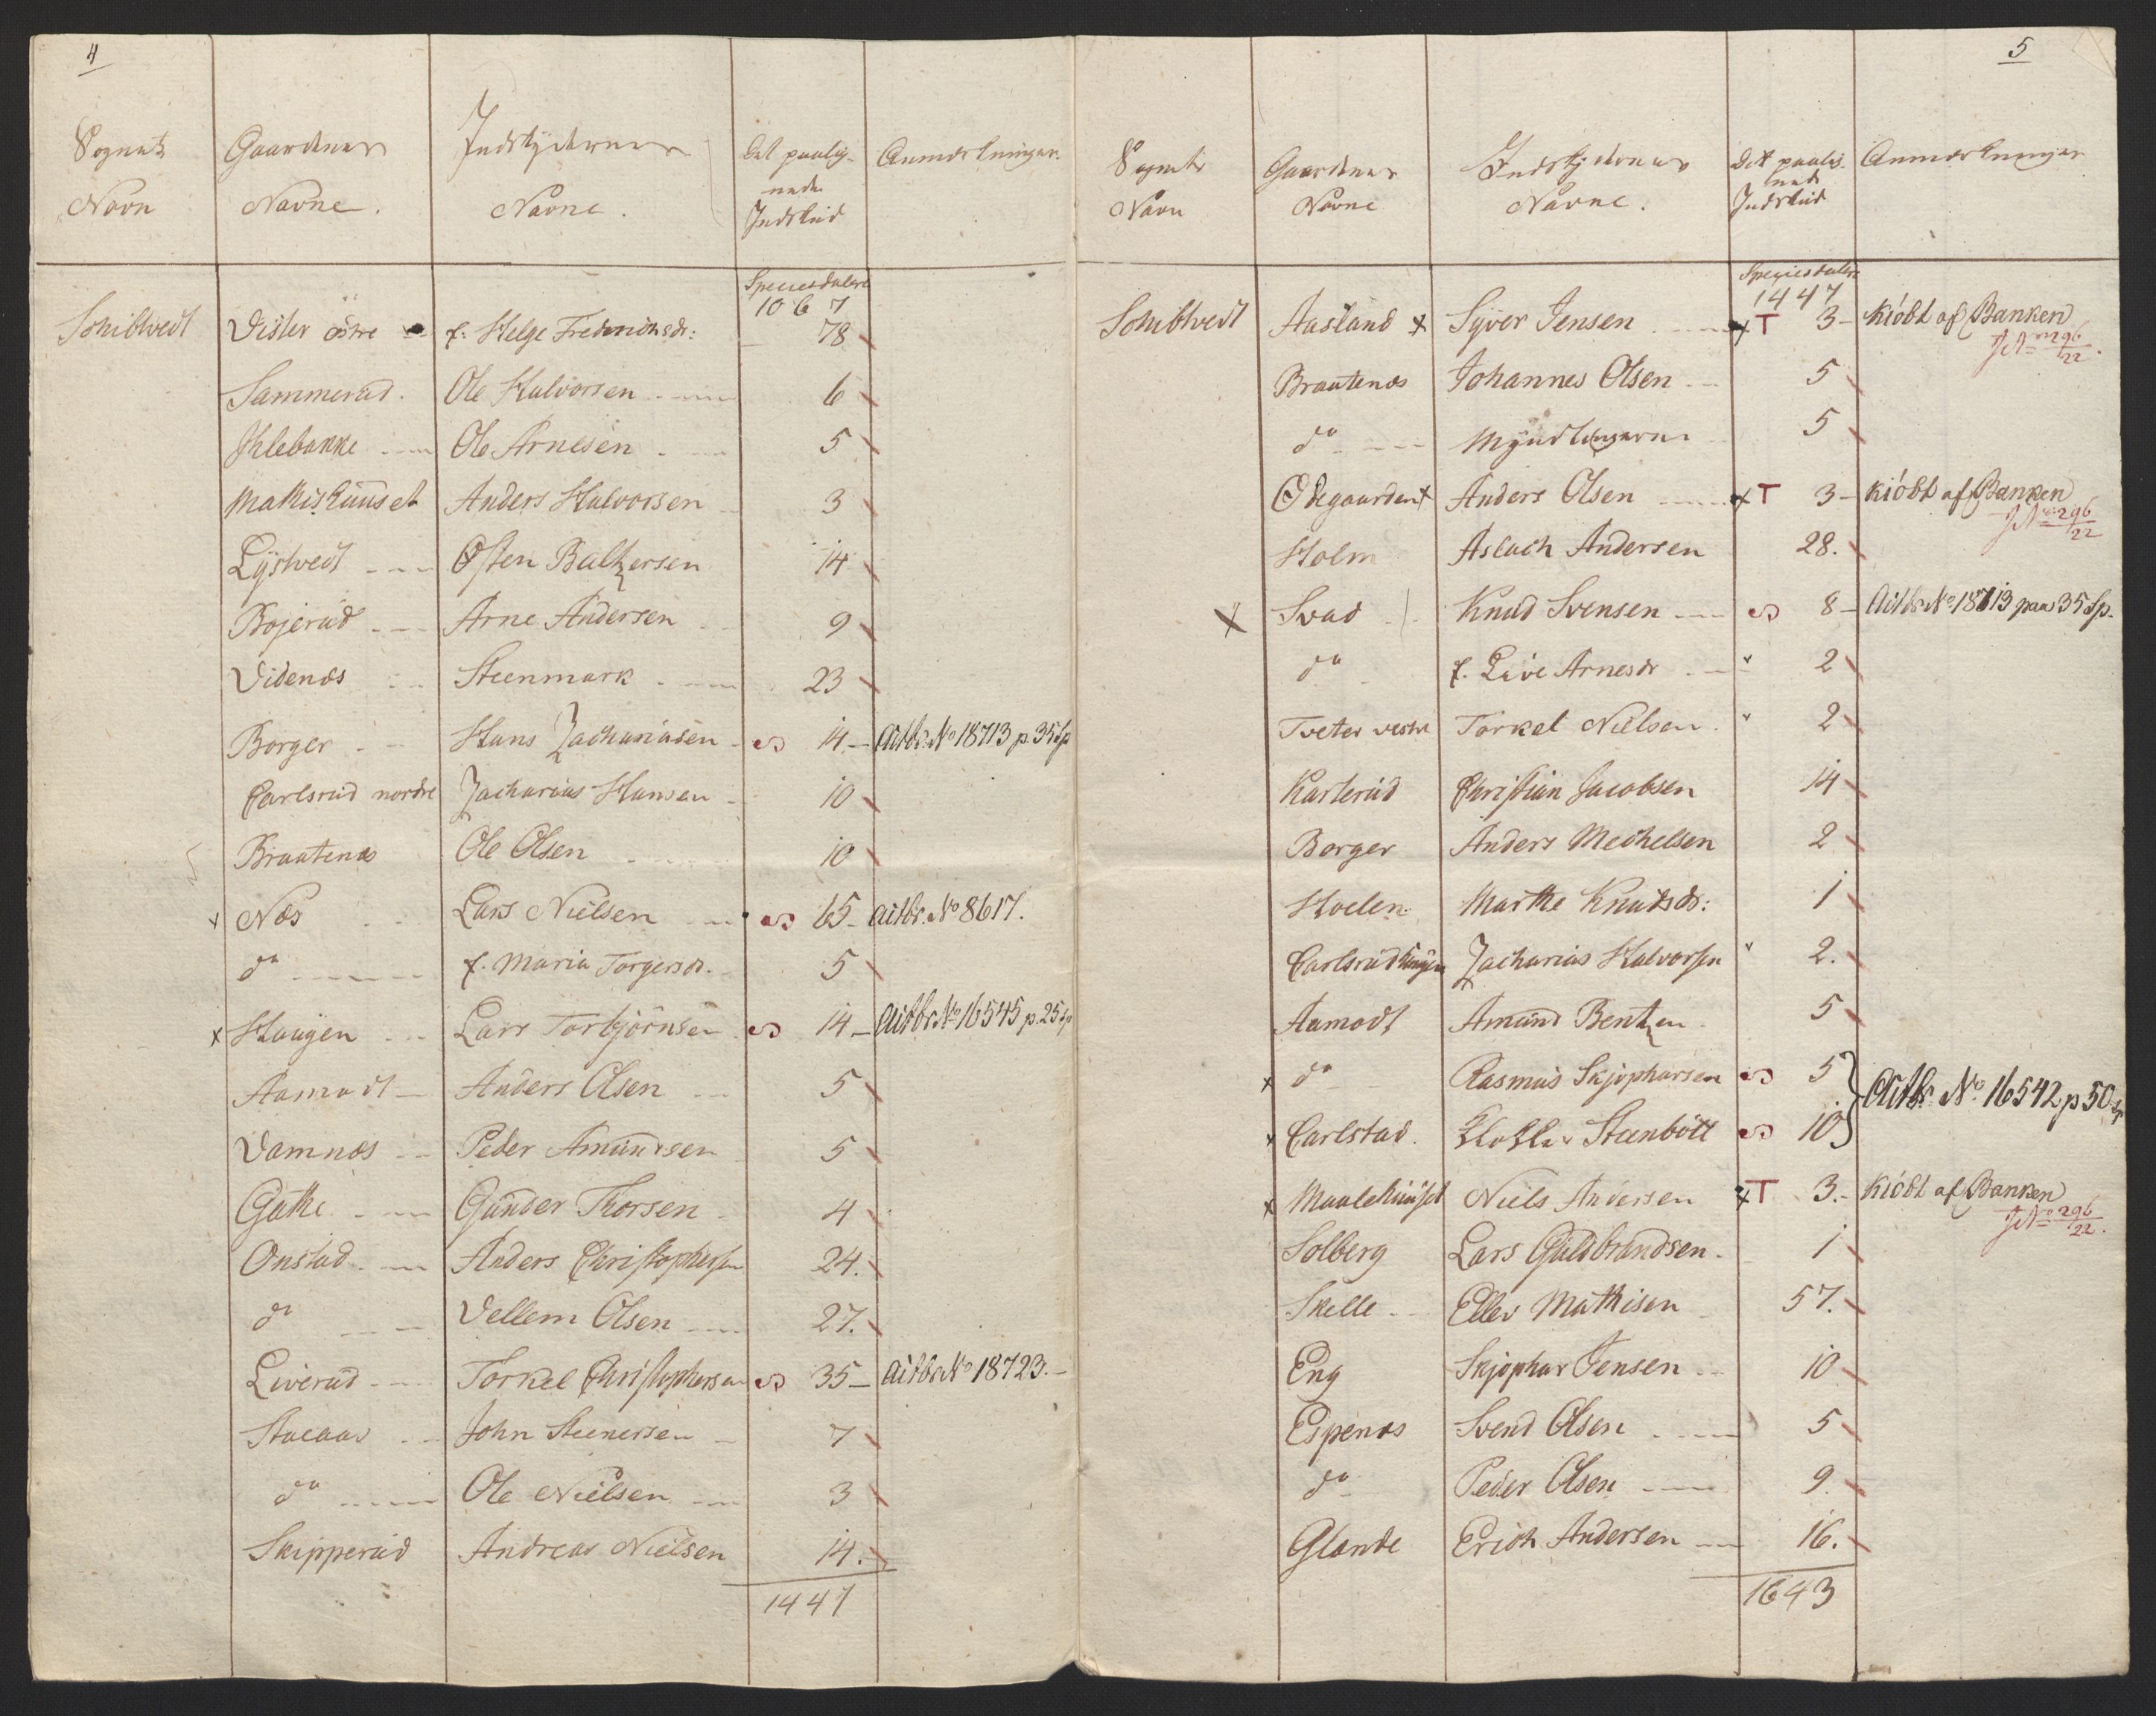 4
Sognets Navn
Gaardenes Navne.
Indskydernes Navne.
Det paalignede Indskud
Anmerkninger.
Speciesdalere
1067
Schibtvedt Vister östre f. Helge Fredrichsdr: 78
Sammerud. Ole Halvorsen 6
Ihlebakke Ole Arnesen 5
Mathishuuset Anders Halvorsen 3
Lystvedt Osten Baltzersen 14
Bojerud Arne Andersen 9
Videnæs Steenmark 23
Borger Hans Zachariasen S 14 Actbr. No 18713 p. 35 Sp
Carlsrud nordre Zacharias Hansen 10
Braatenæs Ole Olsen 10
x Næs Lars Nielsen S 65 Actbr. No 8617.
do f. Maria Torgersdr. 5
x Haugen Lars Torbjörnsen S 14 Actbr No 16545 p. 25 Sp
Aamodt Anders Olsen 5
Damnæs Peder Amundsen 5
Gathe Gunder Thorsen 4
Onstad Anders Christophersen 24.
do Vellem Olsen 27.
Liverud Torkel Christophersen S 35 Actbr No 18723.
Stacaas John Steenersen 7
do Ole Nielsen 3
Skipperud Andreas Nielsen 14.
1447
5
Sognets Navn
Gaardenes Navne
Indskydernes Navne.
Det paalignede Indskud
Anmerkninger
Speciesdalere
1447
Schibtvedt Aasland x Syver Jensen x T 3 Kióbt af Banken
JNo 296/22.
Braatenæs Johannes Olsen 5
do Myndlingerne 5
Odegaarden x Anders Olsen x T 3 Kióbt af Banken
JNo 296/22
Holm Aslach Andersen 28.
x Svad Knud Svensen S 8 Actbr No 18713 paa 35 Sp.
do f. Live Arnesdr 2
Tveter vestre Torkel Nielsen 2
Karlerud Christian Jacobsen 14
Borger Anders Mechelsen 2
Hoelen Marthe Knutsdr: 1
Carlsrud Haugen Zacharias Halvorsen 2.
Aamodt Amund Bentzen 5
x do Rasmus Skjophorsen S 5
Actbr No 16542 p 50 Sp
x Carlstad. Steenbött S 10
x Maalehuuset Niels Andersen x T 3. Kióbt af Banken
JNo 296/22.
Solberg Lars Guldbrandsen 1
Skelle Ellev Mathisen 57.
Eng Skjophor Jensen 10
Espenæs Svend Olsen 5
do Peder Olsen 9.
Glande Erich Andersen 16.
1643